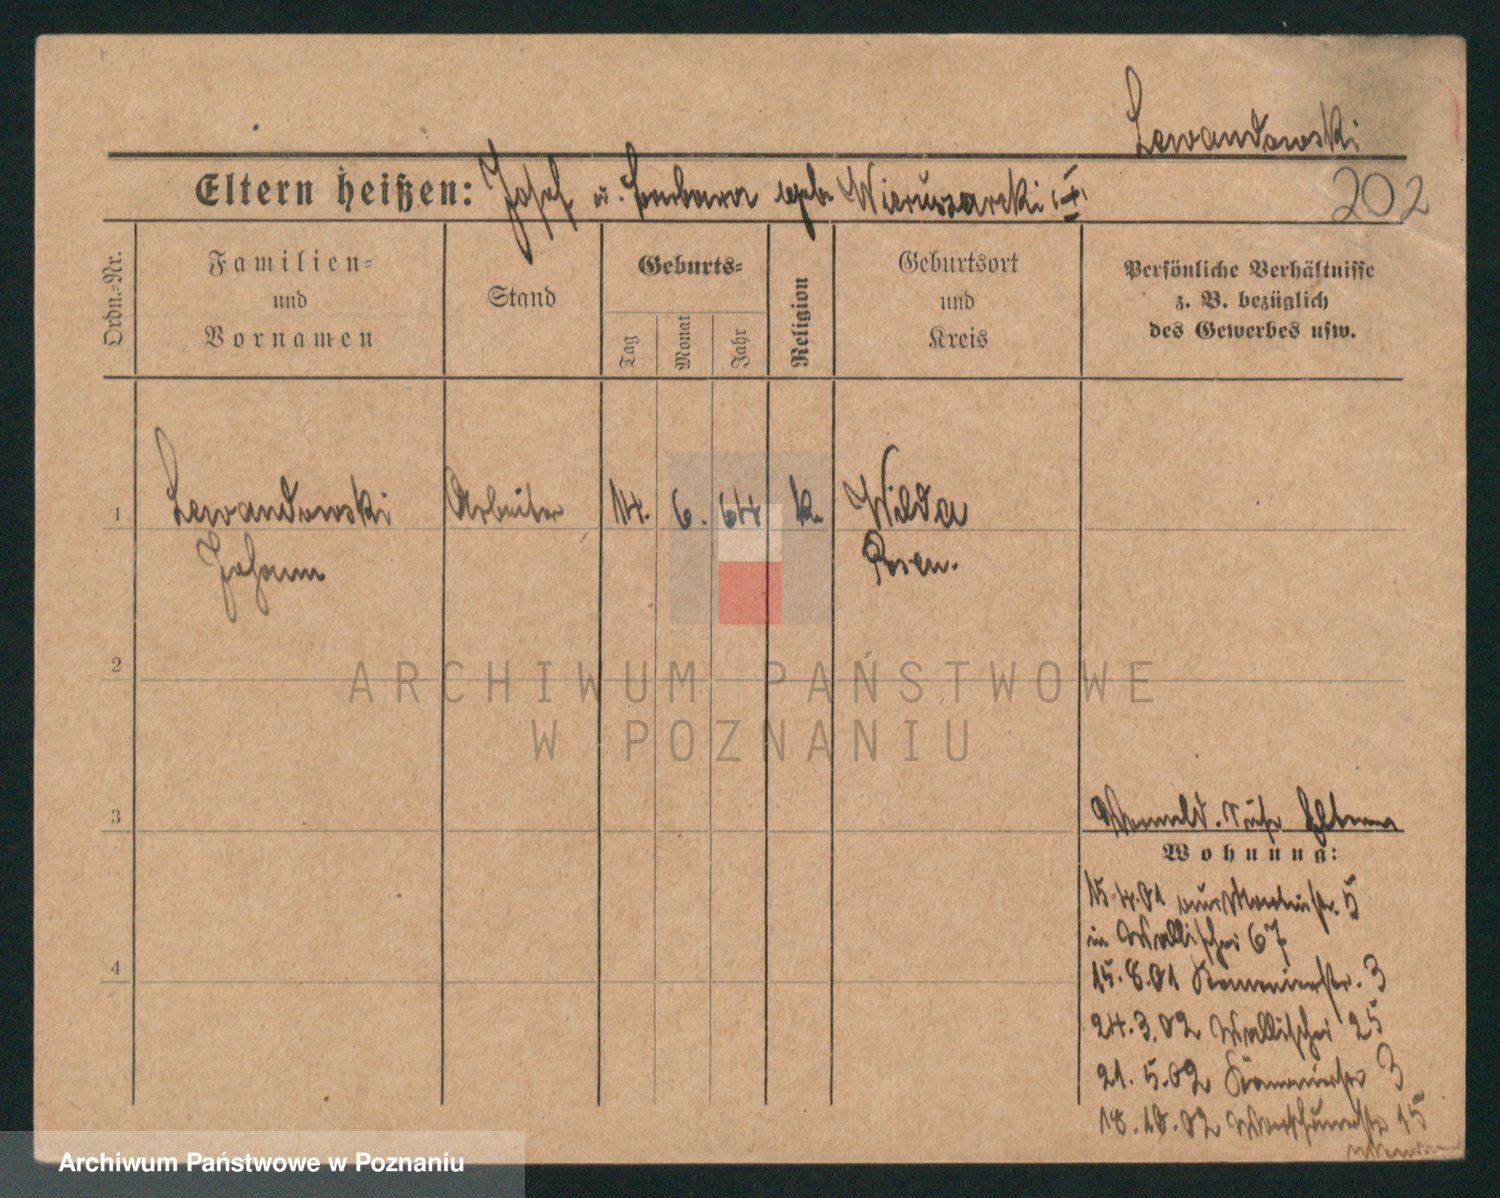 Lewandowski
Eltern heißen: Josef u. Barbara geb. Wieruszarcki
202
Ordn.-Nr.
Familien-
und
Vornamen
Stand
Geburts-
Tag
Monat
Jahr
Religion
Geburtsort
und
Kreis
Persönliche Verhältnisse
z. B. bezüglich
des Gewerbes usw.
1 Lewandowski Arbeiter 14. 6. 64 k. Wilda
Johann Posen.
2
ARCHIWUM PAŃSTWOWE
W POZNANIU
3
Wohnung:
15.4.01 5
in Wallischei 67
15.8.01 3
4
24.3.02 Wallischei 25
21.5.02 3
18.10.02 15
Archiwum Państwowe w Poznaniu